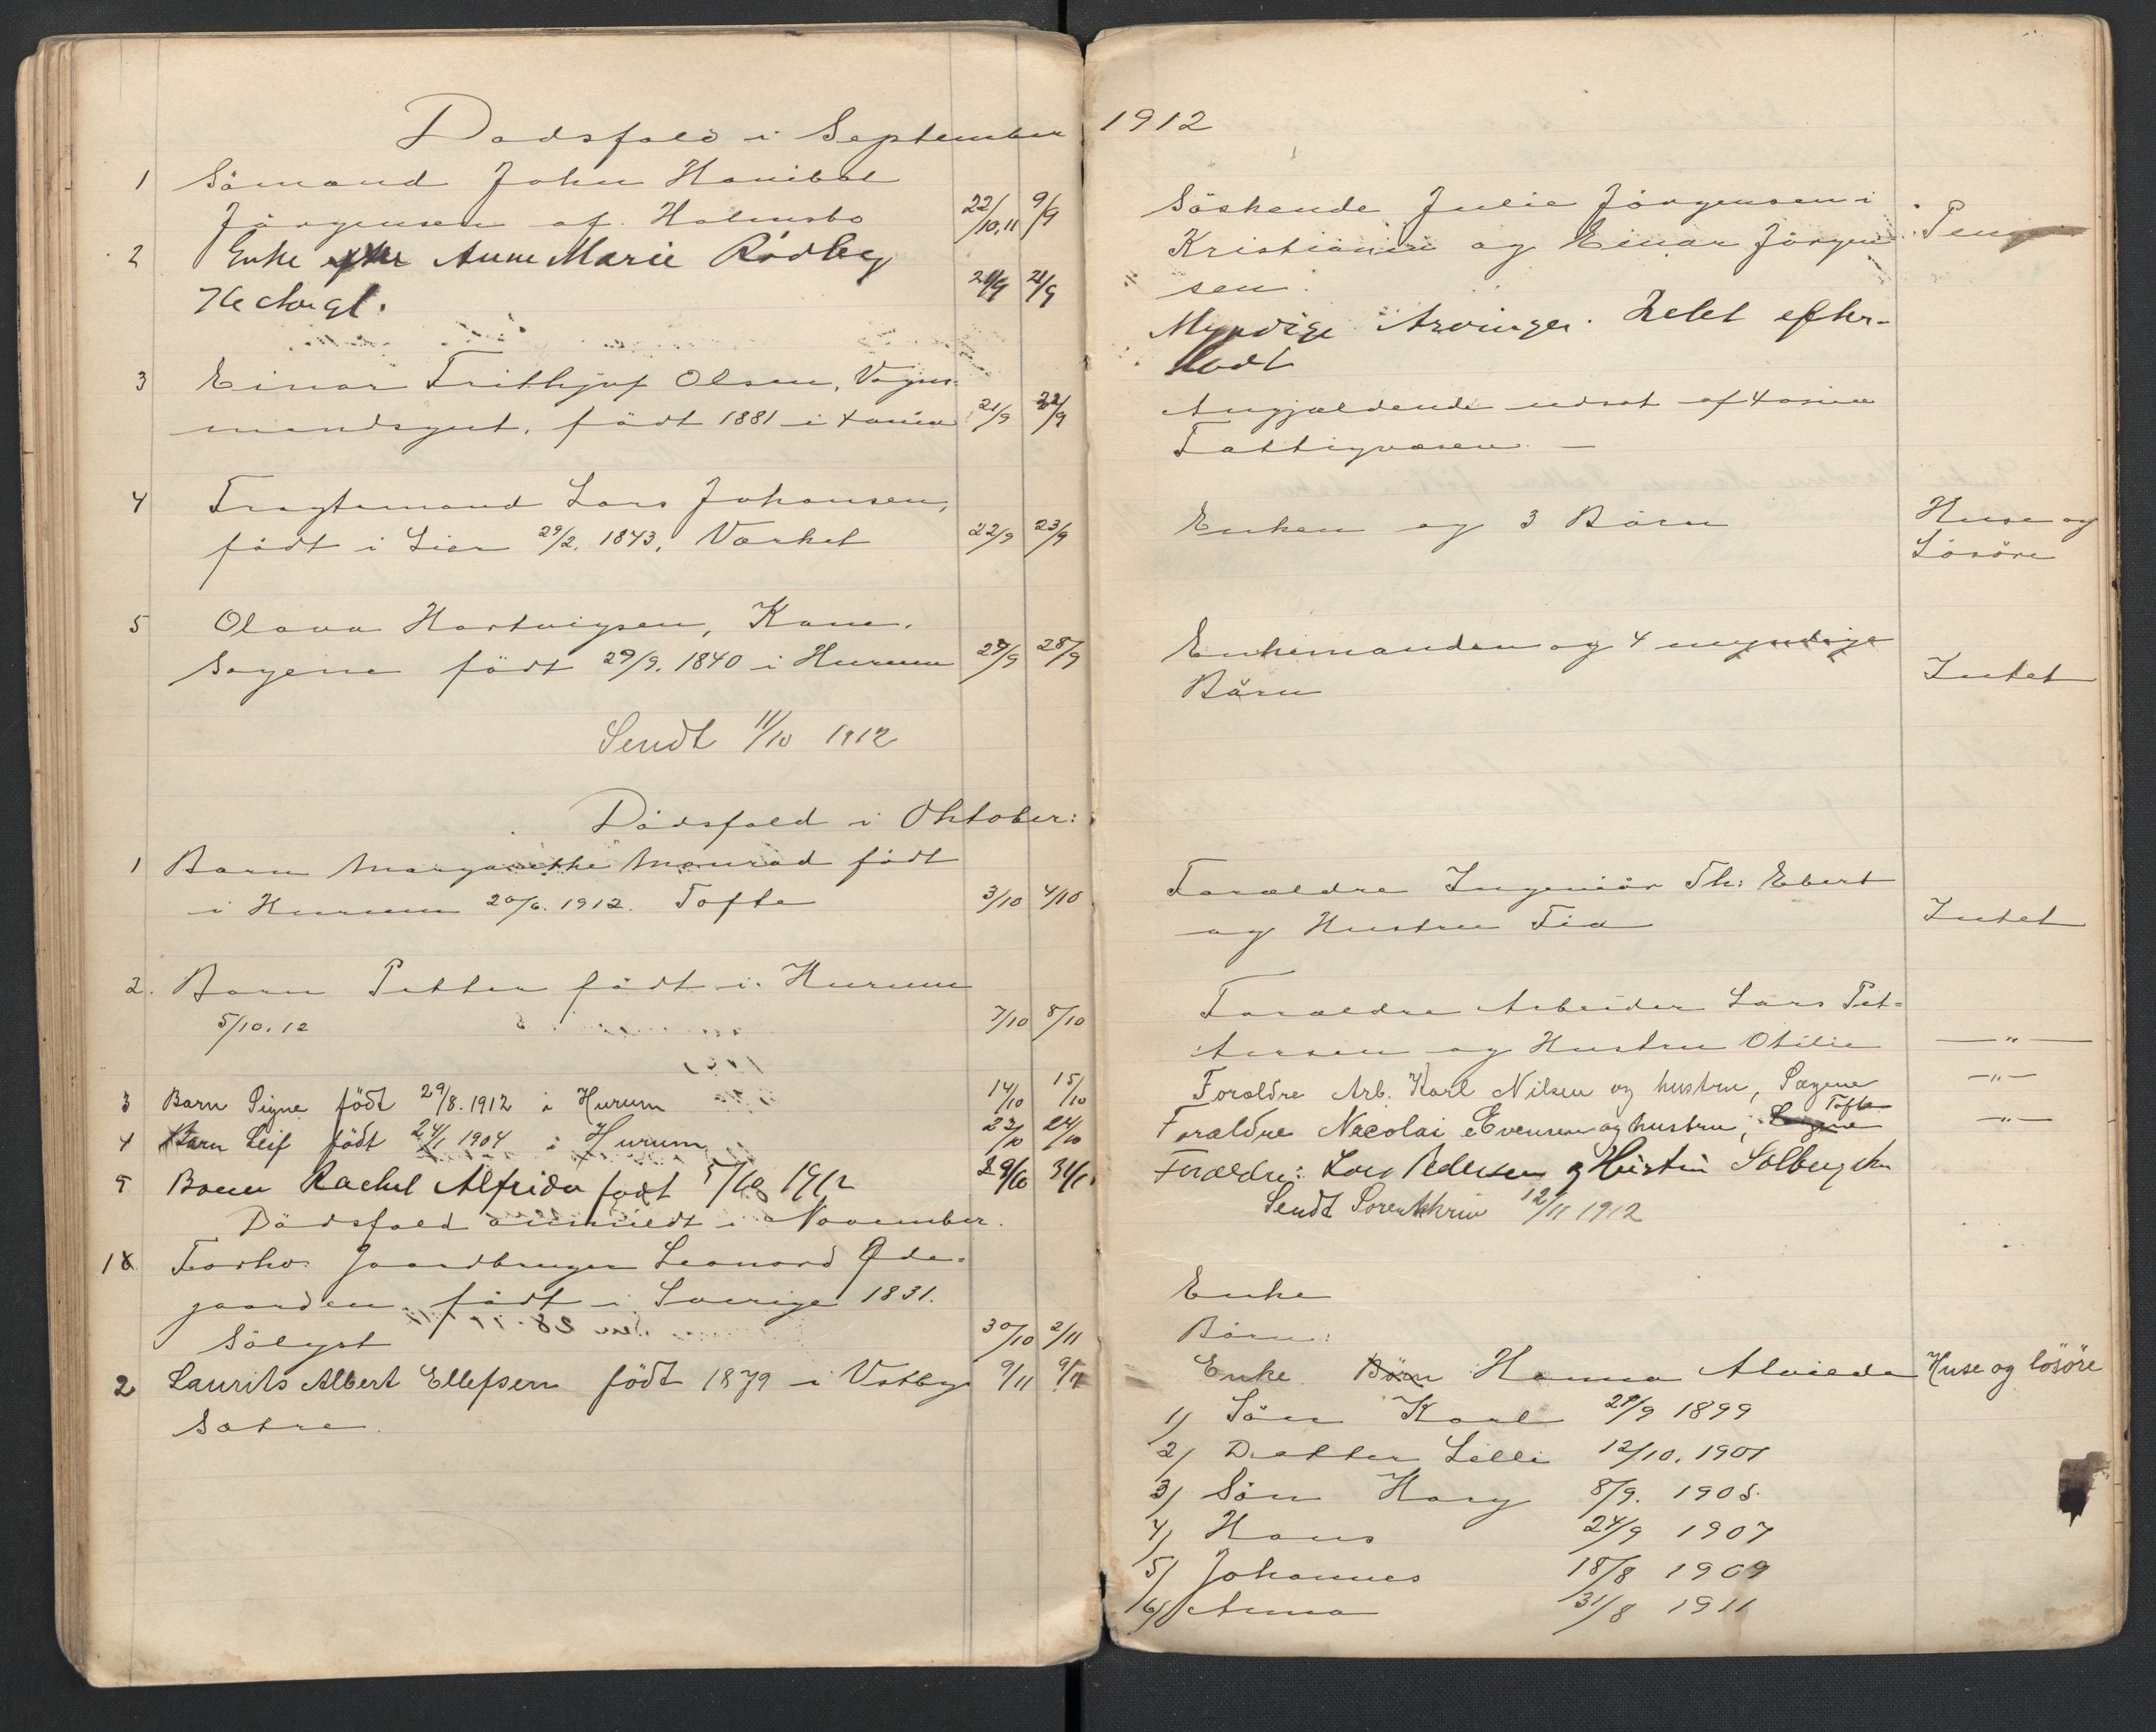 Dødsfald i September 1912
1 Sömand John Hanibal
Jörgensen af Holmsbo 22/10.11 9/9
Söskende Julie Jörgensen i
Kristiania og Einar Jörgen-
sen.
2 Enke Anne Marie Rødby
21/9 21/9
Myndige Arvinger. Intet efter-
ladt
3 Einar Frithjof Olsen, Vogn-
mandsgut, födt 1881 i 21/9 22/9
Angjældende udsat af
Fattigvæsen —
4 Fragtemand Lars Johansen,
födt i Lier 29/2. 1843, Verket 22/9 23/9
Enken og 3 Börn
Huse og
Lösöre
5 Olava Hartvigsen, Kone,
Sagene födt 29/9. 1840 i Hurum 27/9 28/9
Enkemanden og 4 myndige
Börn
Intet
Sendt 11/10 1912
Dödsfald i Oktober:
1 Barn Margarethe Monrad födt
i Hurum 20/6. 1912. Tofte 3/10 4/10
Forældre Ingeniör Th: Ebert
og Hustru Fia
Intet
2. Barn Petter födt i Hurum
5/10. 12 7/10 8/10
Forældre Arbeider Lars Pet-
tersen og Hustru Otilie —"—
3 Barn Signe födt 29/8. 1912 i Hurum 14/10 15/10
Forældre Arb. Karl Nilsen og hustru, Sagene —"—
4 Barn Leif födt 24/1 1904 i Hurum 23/10 24/10
Forældre Nicolai Evensen og hustru, Tofte —"—
5 Barn Rachel Alfrida født 5/10 1912 29/10 31/10
Forældre: Lars Pedersen og Hustru Solberg
Sendt Sorenskriv 12/11 1912
Dödsfald anmeldt i November.
1 Forhv. Gaardbruger Leonard Øde-
gaarden födt i Sverige 1831.
Sölyst 30/10 2/11
Enke
Börn:
2 Laurits Albert Ellefsen födt 1879 i Vestby 9/11 9/11
Sætre.
Enke Börn Hanna Alvilda Huse og lösöre
1) Sön Karl 29/9 1899
2) Datter Lilli 12/10. 1901
3) Sön Harry 8/9. 1905.
4) Hans 24/9 1907
5) Johannes 18/8 1909
6) Anna 31/8 1911